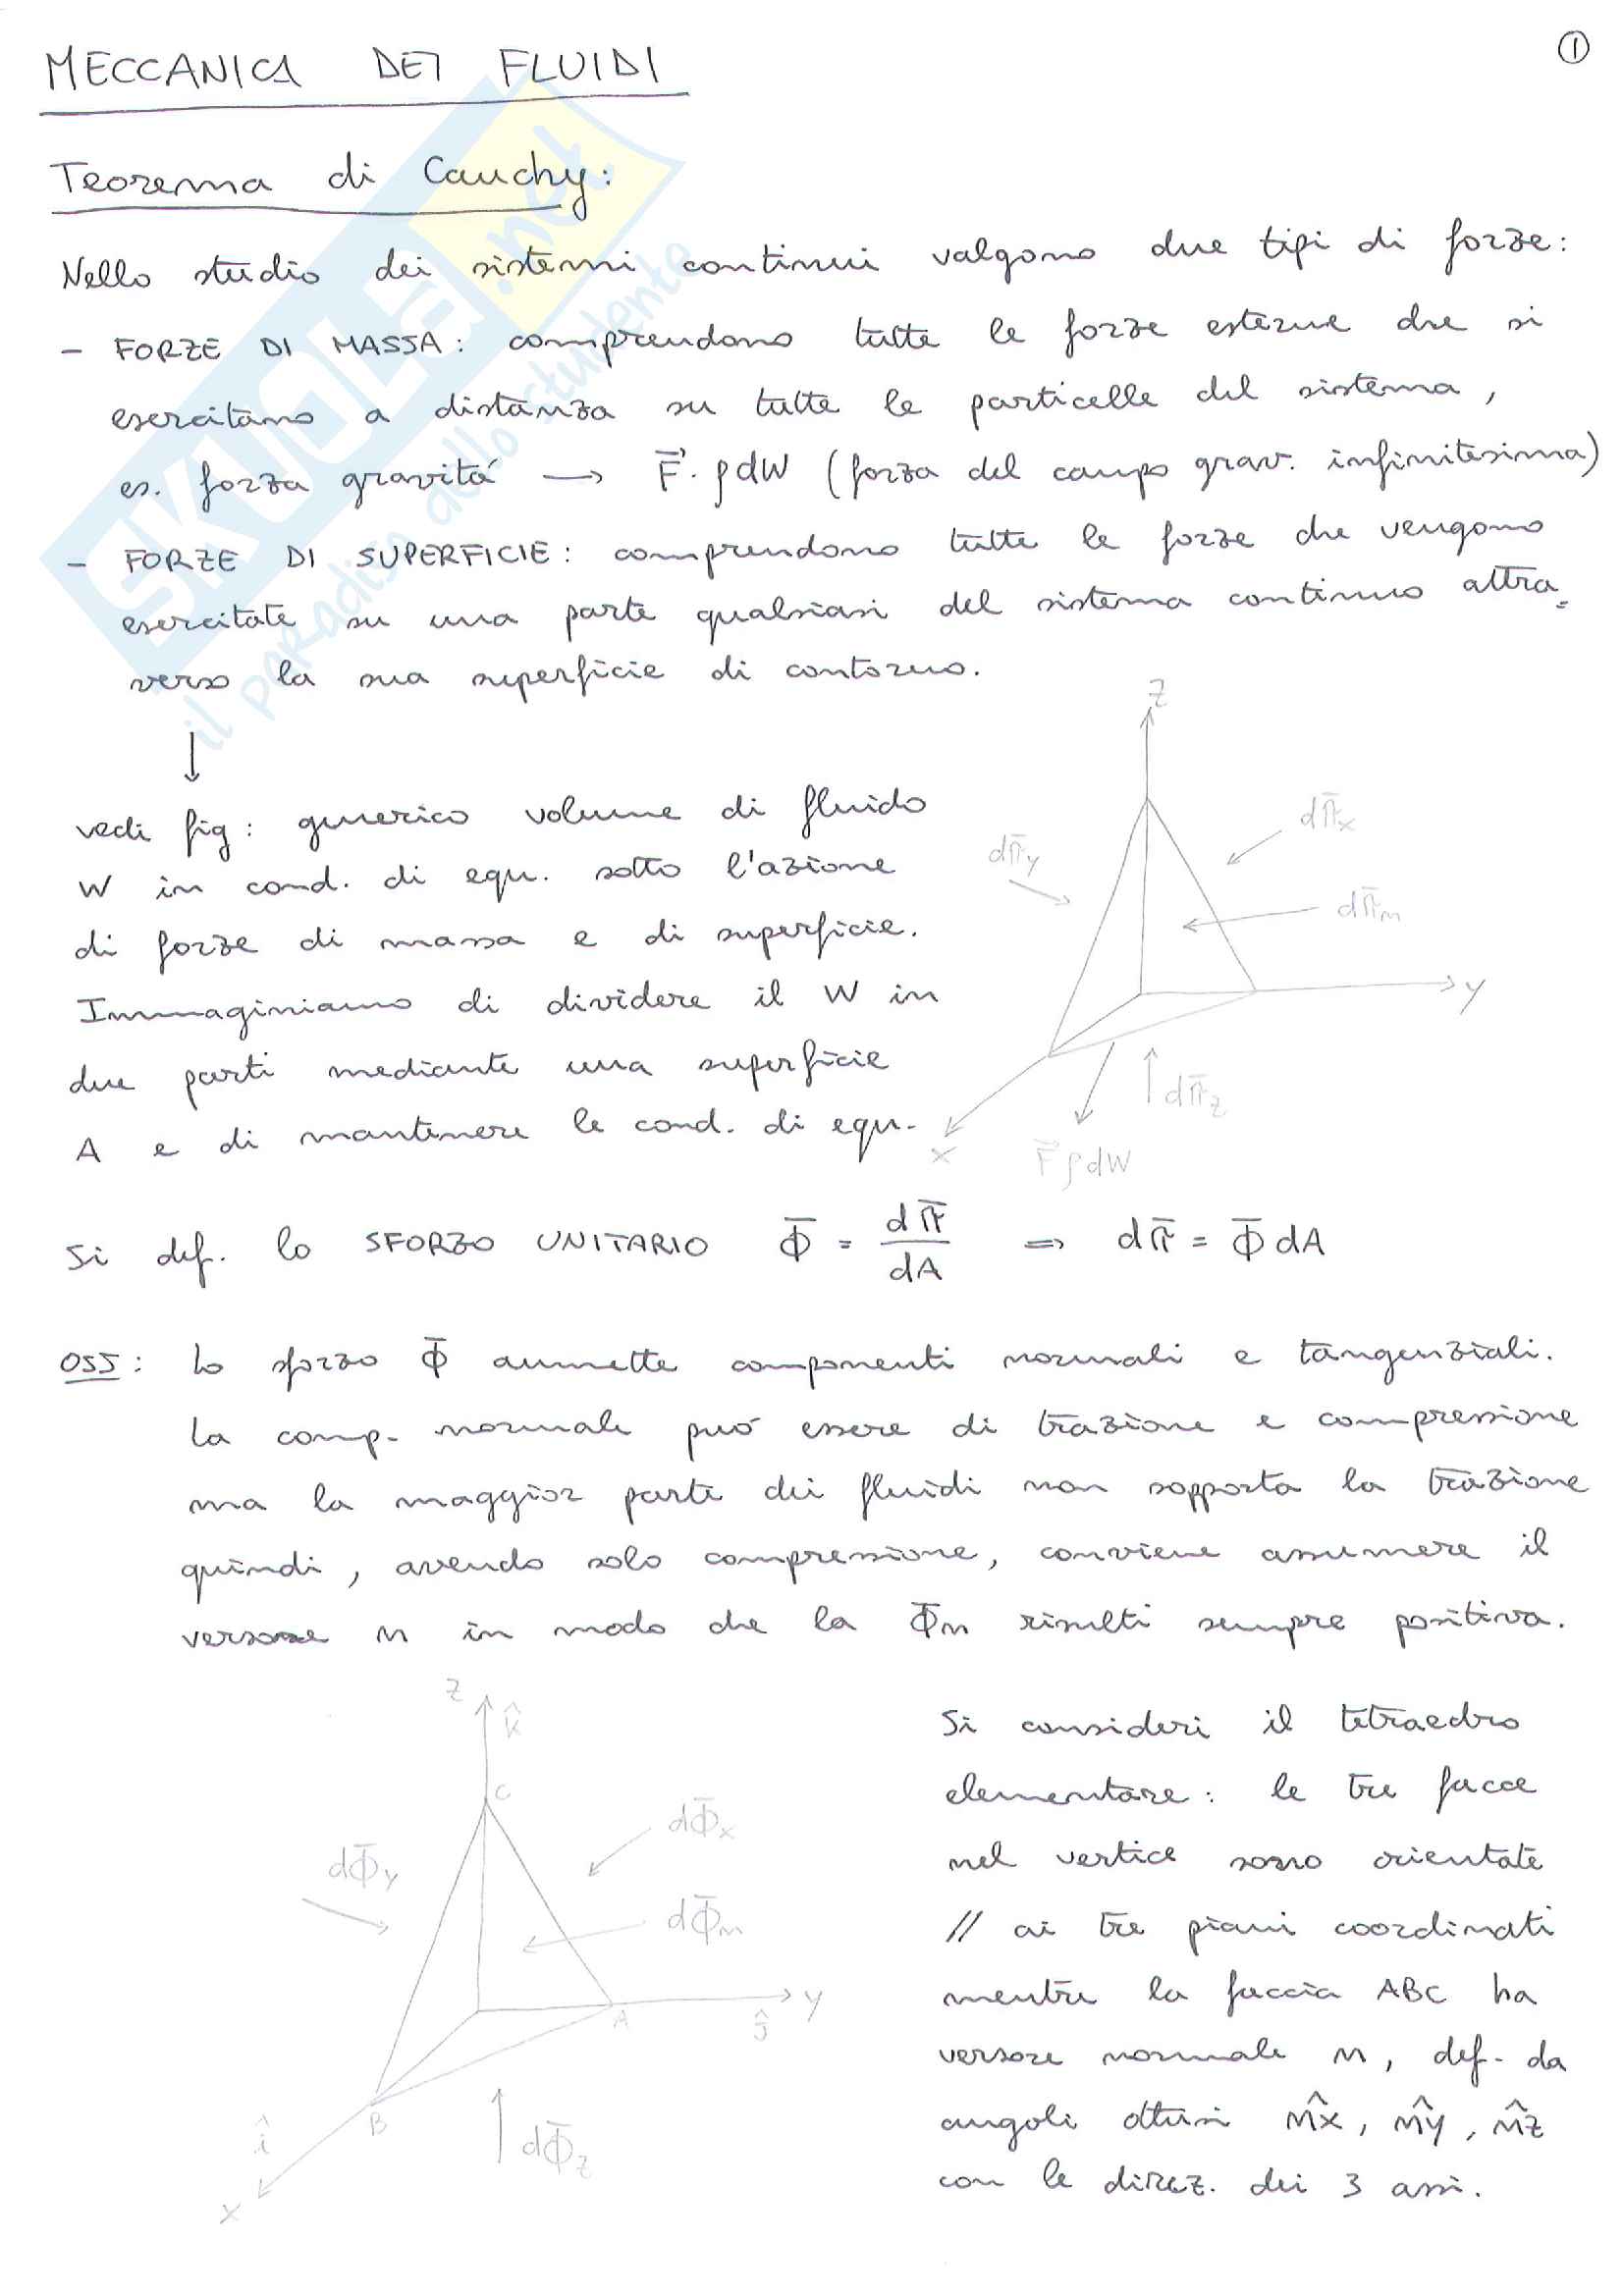 MECCANICA DEI FLUIDI
1
Teorema di Cauchy:
Nello studio dei sistemi continui valgono due tipi di forze:
- FORZE DI MASSA: comprendono tutte le forze esterne che si
esercitano a distanza su tutte le particelle del sistema,
es. forza gravitá → F⃗·ρdW (forza del campo grav. infinitesima)
- FORZE DI SUPERFICIE: comprendono tutte le forze che vengono
esercitate su una parte qualsiasi del sistema continuo attra=
verso la sua superficie di contorno.
↓
vedi fig: generico volume di fluido
W in cond. di equ. sotto l'azione
di forze di massa e di superficie.
Immaginiamo di dividere il W in
due parti mediante una superficie
A e di mantenere le cond. di equ.
z
dπ̄x
dπ̄y
dπ̄n
y
dπ̄z
x
F⃗ρdW
Si def. lo SFORZO UNITARIO Φ̄ = dπ̄/dA ⇒ dπ̄ = Φ̄dA
OSS: Lo sforzo Φ̄ ammette componenti normali e tangenziali.
La comp. normale puó essere di trazione e compressione
ma la maggior parte dei fluidi non sopporta la trazione
quindi, avendo solo compressione, conviene assumere il
versore n in modo che la Φ̄n risulti sempre positiva.
z
k̂
C
dΦ̄x
dΦ̄y
dΦ̄n
A
y
ĵ
B
î
dΦ̄z
x
Si consideri il tetraedro
elementare: le tre facce
nel vertice sono orientate
// ai tre piani coordinati
mentre la faccia ABC ha
versore normale n, def. da
angoli ottusi n̂x, n̂y, n̂z
con le direz. dei 3 assi.
SKUOLA.net
il paradiso dello studente